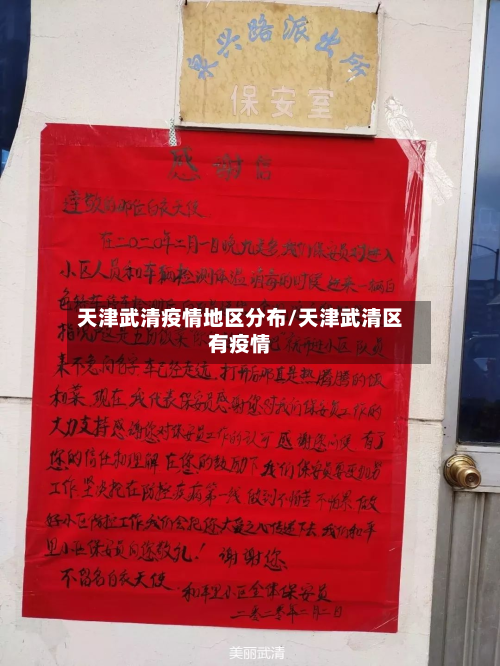 泉兴路派出所
保安室
感谢信
尊敬的那位白衣天使
在二〇二〇年二月一日晚九点多,我们保安员对进入
小区人员和车辆检测体温消毒的时候
天津武清疫情地区分布/天津武清区
有疫情
来不急问名字车已经走远,打开后那真是热腾腾的饭
和菜,现在我代表保安员感谢您对我们保安员工作的
大力支持感谢您对保安员工作的认可感谢您
您的信任和理解在您的鼓励下我们保安员要更加努
工作坚决把在防控疫病第一线做到不怕苦不怕累做
好小区防控工作我们会把您大爱之心传递下去我们和平
里小区保安员向您致礼!谢谢您
不留名白衣天使
和平里小区全体保安员
二〇二〇年二月二日
美丽武清